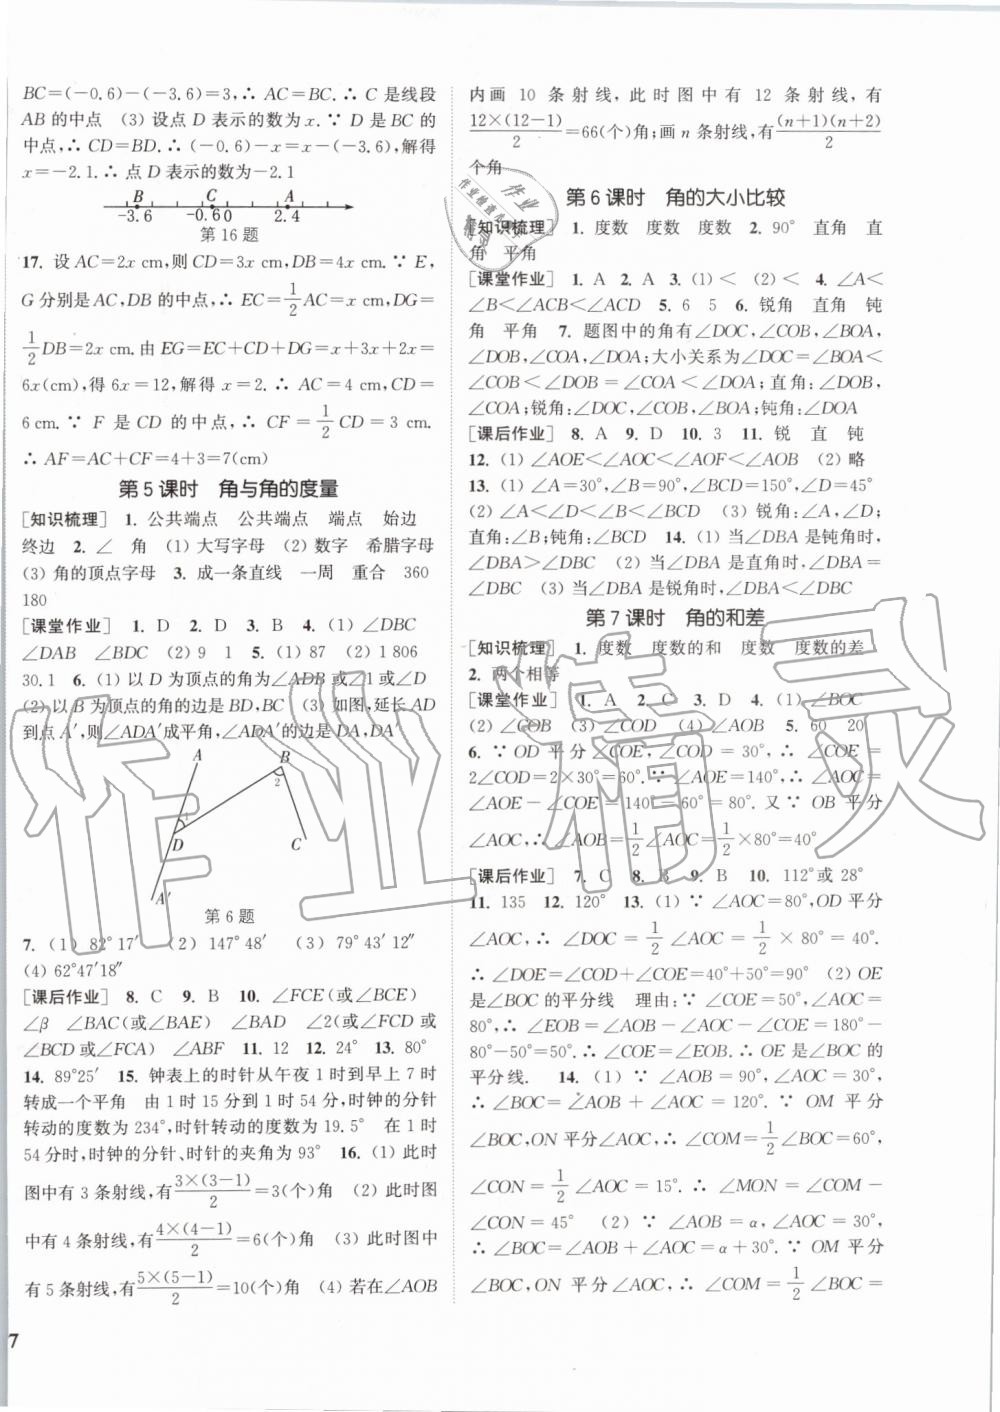 BC=(-0.6)-(-3.6)=3,∴ AC=BC.∴ C 是线段
AB 的中点 (3) 设点 D 表示的数为 x.∵ D 是 BC 的
中点,∴ CD=BD.∴ (-0.6)-x=x-(-3.6),解得
x=-2.1.∴ 点 D 表示的数为-2.1
B C A
-3.6 -0.6 0 2.4
第 16 题
17. 设 AC=2x cm,则 CD=3x cm,DB=4x cm.∵ E,
G 分别是 AC,DB 的中点,∴ EC=1/2AC=x cm,DG=
1/2DB=2x cm.由 EG=EC+CD+DG=x+3x+2x=
6x(cm),得 6x=12,解得 x=2.∴ AC=4 cm,CD=
6 cm.∵ F 是 CD 的中点,∴ CF=1/2CD=3 cm.
∴ AF=AC+CF=4+3=7(cm)
第 5 课时 角与角的度量
[知识梳理] 1. 公共端点 公共端点 端点 始边
终边 2. ∠ 角 (1) 大写字母 (2) 数字 希腊字母
(3) 角的顶点字母 3. 成一条直线 一周 重合 360
180
[课堂作业] 1. D 2. D 3. B 4. (1) ∠DBC
∠DAB ∠BDC (2) 9 1 5. (1) 87 (2) 1 806
30.1 6. (1) 以 D 为顶点的角为∠ADB 或∠1 或∠D
(2) 以 B 为顶点的角的边是 BD,BC (3) 如图,延长 AD
到点 A′,则∠ADA′成平角,∠ADA′的边是 DA,DA′
A B
2
1
D C
A′
第 6 题
7. (1) 82°17′ (2) 147°48′ (3) 79°43′12″
(4) 62°47′18″
[课后作业] 8. C 9. B 10. ∠FCE(或∠BCE)
∠β ∠BAC(或∠BAE) ∠BAD ∠2(或∠FCD 或
∠BCD 或∠FCA) ∠ABF 11. 12 12. 24° 13. 80°
14. 89°25′ 15. 钟表上的时针从午夜 1 时到早上 7 时
转成一个平角 由 1 时 15 分到 1 时 54 分,时钟的分针
转动的度数为 234°,时针转动的度数为 19.5° 在 1 时
54 分时,时钟的分针、时针的夹角为 93° 16. (1) 此时
图中有 3 条射线,有3×(3-1)/2=3(个)角 (2) 此时图
中有 4 条射线,有4×(4-1)/2=6(个)角 (3) 此时图中
有 5 条射线,有5×(5-1)/2=10(个)角 (4) 若在∠AOB
7
内画 10 条射线,此时图中有 12 条射线,有
12×(12-1)/2=66(个)角;画 n 条射线,有(n+1)(n+2)/2
个角
第 6 课时 角的大小比较
[知识梳理] 1. 度数 度数 度数 2. 90° 直角 直
角 平角
[课堂作业] 1. A 2. A 3. (1) < (2) < 4. ∠A<
∠B<∠ACB<∠ACD 5. 6 5 6. 锐角 直角 钝
角 平角 7. 题图中的角有∠DOC,∠COB,∠BOA,
∠DOB,∠COA,∠DOA;大小关系为∠DOC=∠BOA<
∠COB<∠DOB=∠COA<∠DOA;直角:∠DOB,
∠COA;锐角:∠DOC,∠COB,∠BOA;钝角:∠DOA
[课后作业] 8. A 9. D 10. 3 11. 锐 直 钝
12. (1) ∠AOE<∠AOC<∠AOF<∠AOB (2) 略
13. (1) ∠A=30°,∠B=90°,∠BCD=150°,∠D=45°
(2) ∠A<∠D<∠B<∠BCD (3) 锐角:∠A,∠D;
直角:∠B;钝角:∠BCD 14. (1) 当∠DBA 是钝角时,
∠DBA>∠DBC (2) 当∠DBA 是直角时,∠DBA=
∠DBC (3) 当∠DBA 是锐角时,∠DBA<∠DBC
第 7 课时 角的和差
[知识梳理] 1. 度数 度数的和 度数 度数的差
2. 两个相等
[课堂作业] 1. A 2. C 3. D 4. (1) ∠BOC
(2) ∠COB (3) ∠COD (4) ∠AOB 5. 60 20
6. ∵ OD 平分∠COE,∠COD=30°,∴ ∠COE=
2∠COD=2×30°=60°.∵ ∠AOE=140°,∴ ∠AOC=
∠AOE-∠COE=140°-60°=80°.又∵ OB 平分
∠AOC,∴ ∠AOB=1/2∠AOC=1/2×80°=40°
[课后作业] 7. C 8. B 9. B 10. 112°或 28°
11. 135 12. 120° 13. (1) ∵ ∠AOC=80°,OD 平分
∠AOC,∴ ∠DOC=1/2∠AOC=1/2×80°=40°.
∴ ∠DOE=∠COD+∠COE=40°+50°=90° (2) OE
是∠BOC 的平分线 理由:∵ ∠COE=50°,∠AOC=
80°,∴ ∠EOB=∠AOB-∠AOC-∠COE=180°-
80°-50°=50°.∴ ∠COE=∠EOB.∴ OE 是∠BOC 的
平分线. 14. (1) ∵ ∠AOB=90°,∠AOC=30°,
∴ ∠BOC=∠AOB+∠AOC=120°.∵ OM 平分
∠BOC,ON 平分∠AOC,∴ ∠COM=1/2∠BOC=60°,
∠CON=1/2∠AOC=15°.∴ ∠MON=∠COM-
∠CON=45° (2) ∵ ∠AOB=α,∠AOC=30°,
∴ ∠BOC=∠AOB+∠AOC=α+30°.∵ OM 平分
∠BOC,ON 平分∠AOC,∴ ∠COM=1/2∠BOC=
作业精灵